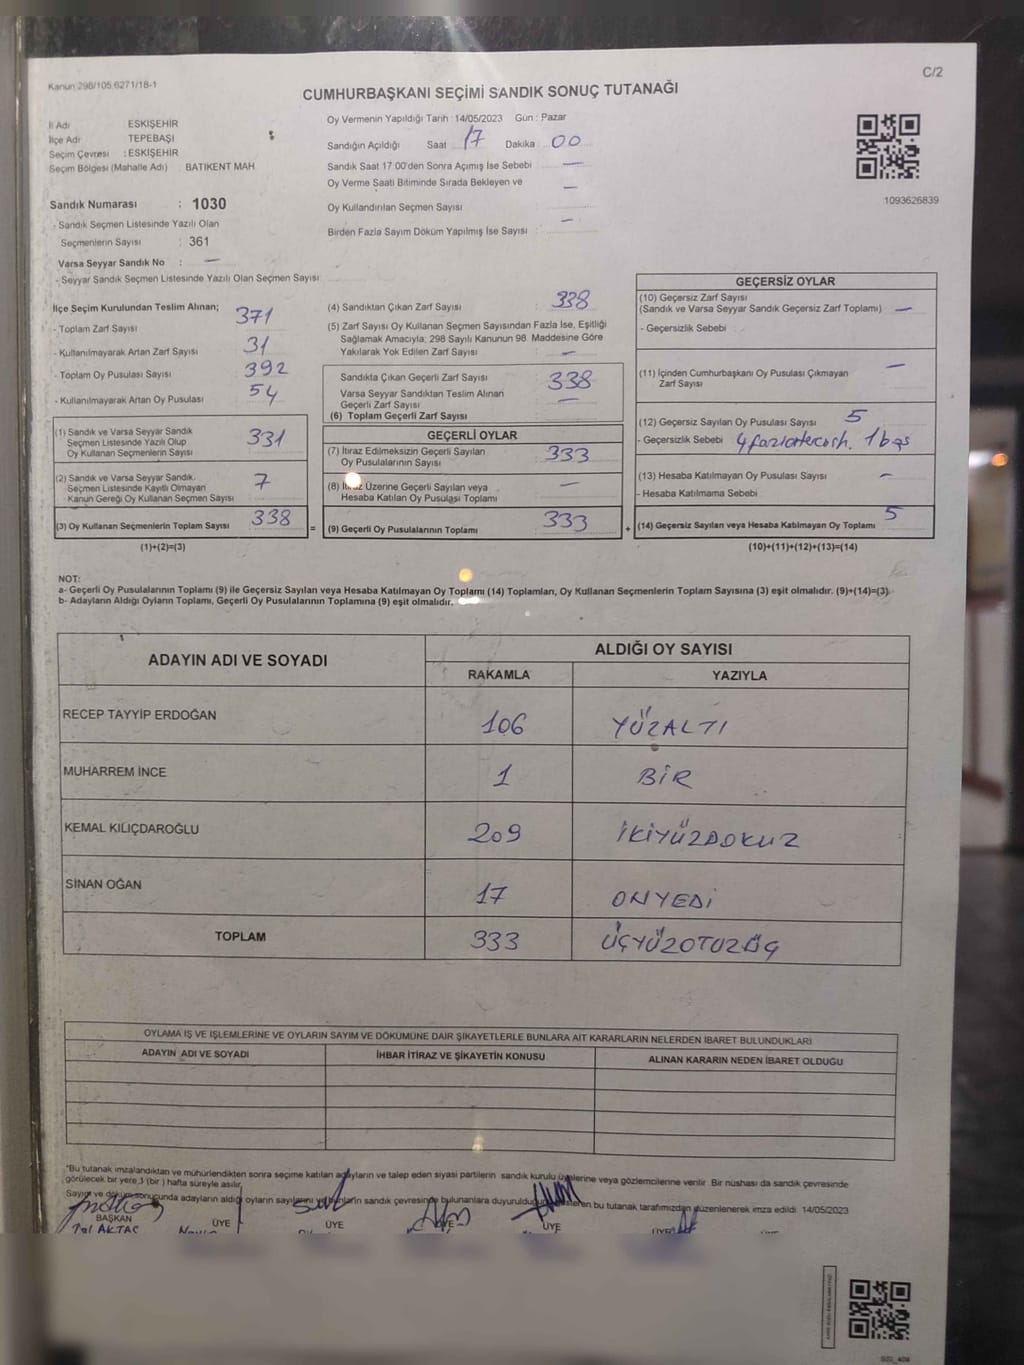 Kanun 298/105 6271/18-1
C/2
CUMHURBAŞKANI SEÇİMİ SANDIK SONUÇ TUTANAĞI
İl Adı ESKİŞEHİR
İlçe Adı TEPEBAŞI
Seçim Çevresi : ESKİŞEHİR
Seçim Bölgesi (Mahalle Adı) BATIKENT MAH
Oy Vermenin Yapıldığı Tarih : 14/05/2023 Gün : Pazar
Sandığın Açıldığı Saat 17 Dakika 00
Sandık Saat 17 00'den Sonra Açımış İse Sebebi —
Oy Verme Saati Bitiminde Sırada Bekleyen ve
Oy Kullandırılan Seçmen Sayısı —
Birden Fazla Sayım Döküm Yapılmış İse Sayısı —
1093626839
Sandık Numarası : 1030
- Sandık Seçmen Listesinde Yazılı Olan
Seçmenlerin Sayısı : 361
Varsa Seyyar Sandık No : —
- Seyyar Sandık Seçmen Listesinde Yazılı Olan Seçmen Sayısı
İlçe Seçim Kurulundan Teslim Alınan;
- Toplam Zarf Sayısı 371
- Kullanılmayarak Artan Zarf Sayısı 31
- Toplam Oy Pusulası Sayısı 392
- Kullanılmayarak Artan Oy Pusulası 54
(1) Sandık ve Varsa Seyyar Sandık
Seçmen Listesinde Yazılı Olup
Oy Kullanan Seçmenlerin Sayısı 331
(2) Sandık ve Varsa Seyyar Sandık
Seçmen Listesinde Kayıtlı Olmayan
Kanun Gereği Oy Kullanan Seçmen Sayısı 7
(3) Oy Kullanan Seçmenlerin Toplam Sayısı 338
(1)+(2)=(3)
(4) Sandıktan Çıkan Zarf Sayısı : 338
(5) Zarf Sayısı Oy Kullanan Seçmen Sayısından Fazla İse, Eşitliği
Sağlamak Amacıyla, 298 Sayılı Kanunun 98. Maddesine Göre
Yakılarak Yok Edilen Zarf Sayısı —
Sandıkta Çıkan Geçerli Zarf Sayısı 338
Varsa Seyyar Sandıktan Teslim Alınan
Geçerli Zarf Sayısı —
(6) Toplam Geçerli Zarf Sayısı
GEÇERLİ OYLAR
(7) İtiraz Edilmeksizin Geçerli Sayılan
Oy Pusulalarının Sayısı 333
(8) İtiraz Üzerine Geçerli Sayılan veya
Hesaba Katılan Oy Pusulası Toplamı —
= (9) Geçerli Oy Pusulalarının Toplamı 333 +
GEÇERSİZ OYLAR
(10) Geçersiz Zarf Sayısı
(Sandık ve Varsa Seyyar Sandık Geçersiz Zarf Toplamı) —
- Geçersizlik Sebebi
(11) İçinden Cumhurbaşkanı Oy Pusulası Çıkmayan
Zarf Sayısı —
(12) Geçersiz Sayılan Oy Pusulası Sayısı 5
- Geçersizlik Sebebi 4 1 boş
(13) Hesaba Katılmayan Oy Pusulası Sayısı —
- Hesaba Katılmama Sebebi
(14) Geçersiz Sayılan veya Hesaba Katılmayan Oy Toplamı 5
(10)+(11)+(12)+(13)=(14)
NOT:
a- Geçerli Oy Pusulalarının Toplamı (9) ile Geçersiz Sayılan veya Hesaba Katılmayan Oy Toplamı (14) Toplamları, Oy Kullanan Seçmenlerin Toplam Sayısına (3) eşit olmalıdır. (9)+(14)=(3)
b- Adayların Aldığı Oyların Toplamı, Geçerli Oy Pusulalarının Toplamına (9) eşit olmalıdır.
ADAYIN ADI VE SOYADI ALDIĞI OY SAYISI
RAKAMLA YAZIYLA
RECEP TAYYİP ERDOĞAN 106 YÜZALTI
MUHARREM İNCE 1 BİR
KEMAL KILIÇDAROĞLU 209 İKİYÜZDOKUZ
SİNAN OĞAN 17 ONYEDİ
TOPLAM 333 ÜÇYÜZOTUZÜÇ
OYLAMA İŞ VE İŞLEMLERİNE VE OYLARIN SAYIM VE DÖKÜMÜNE DAİR ŞİKAYETLERLE BUNLARA AİT KARARLARIN NELERDEN İBARET BULUNDUKLARI
ADAYIN ADI VE SOYADI İHBAR İTİRAZ VE ŞİKAYETİN KONUSU ALINAN KARARIN NEDEN İBARET OLDUĞU
*Bu tutanak imzalandıktan ve mühürlendikten sonra seçime katılan adayların ve talep eden siyasi partilerin sandık kurulu üyelerine veya gözlemcilerine verilir Bir nüshası da sandık çevresinde
görülecek bir yere 3 (bir ) hafta süreyle asılır.
Sayım ve döküm sonucunda adayların aldığı oyların sayılarını ve bunların sandık çevresinde bulunanlara duyurulduğunu gösteren bu tutanak tarafımızdan düzenlenerek imza edildi 14/05/2023
BAŞKAN ÜYE ÜYE ÜYE ÜYE
AKTAŞ